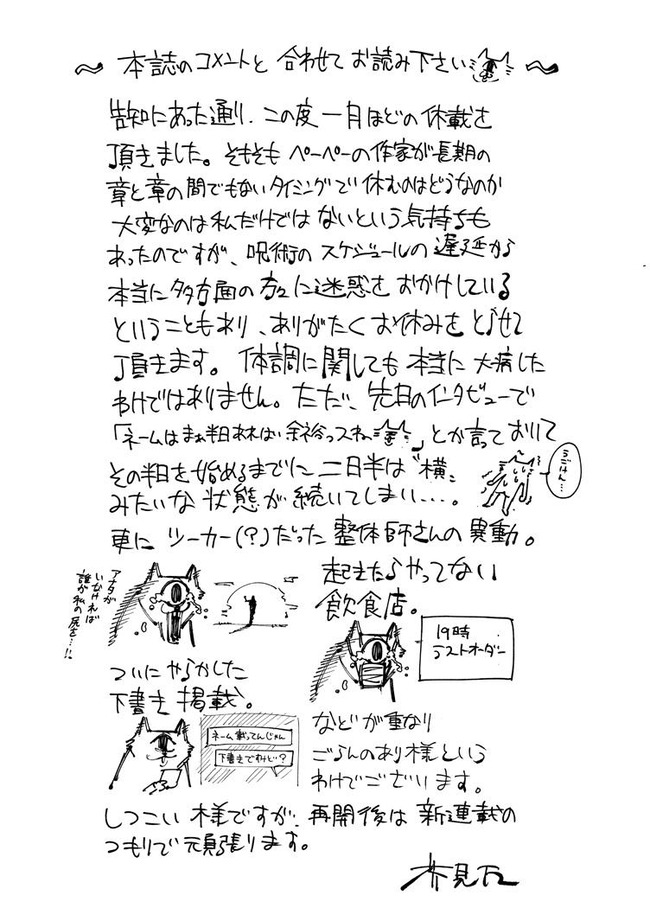 ～ 本誌のコメントと合わせてお読み下さい ～
告知にあった通り、この度一月ほどの休載を
頂きました。そもそもペーペーの作家が長期の
章と章の間でもないタイミングで休むのはどうなのか
大変なのは私だけではないという気持ちも
あったのですが、呪術のスケジュールの遅延から
本当に多方面の方々に迷惑をおかけしている
ということもあり、ありがたくお休みをとらせて
頂きます。体調に関しても本当に大病した
わけではありません。ただ、先日のインタビューで
「ネームはまぁ半日あれば余裕っスね」とか言っておいて
その半日を始めるまでに二日半は〝横〟
みたいな状態が続いてしまい…。
うごけん…
更にツーカー(?)だった整体師さんの異動。
アナタが
いなければ
誰が私の尻を…!!
起きたらやってない
飲食店。
19時
ラストオーダー
ついにやらかした
下書き掲載。
ネーム載ってんじゃん
下書きですけど?
などが重なり
ごらんのあり様という
わけでございます。
しつこい様ですが、再開後は新連載の
つもりで頑張ります。
芥見下々